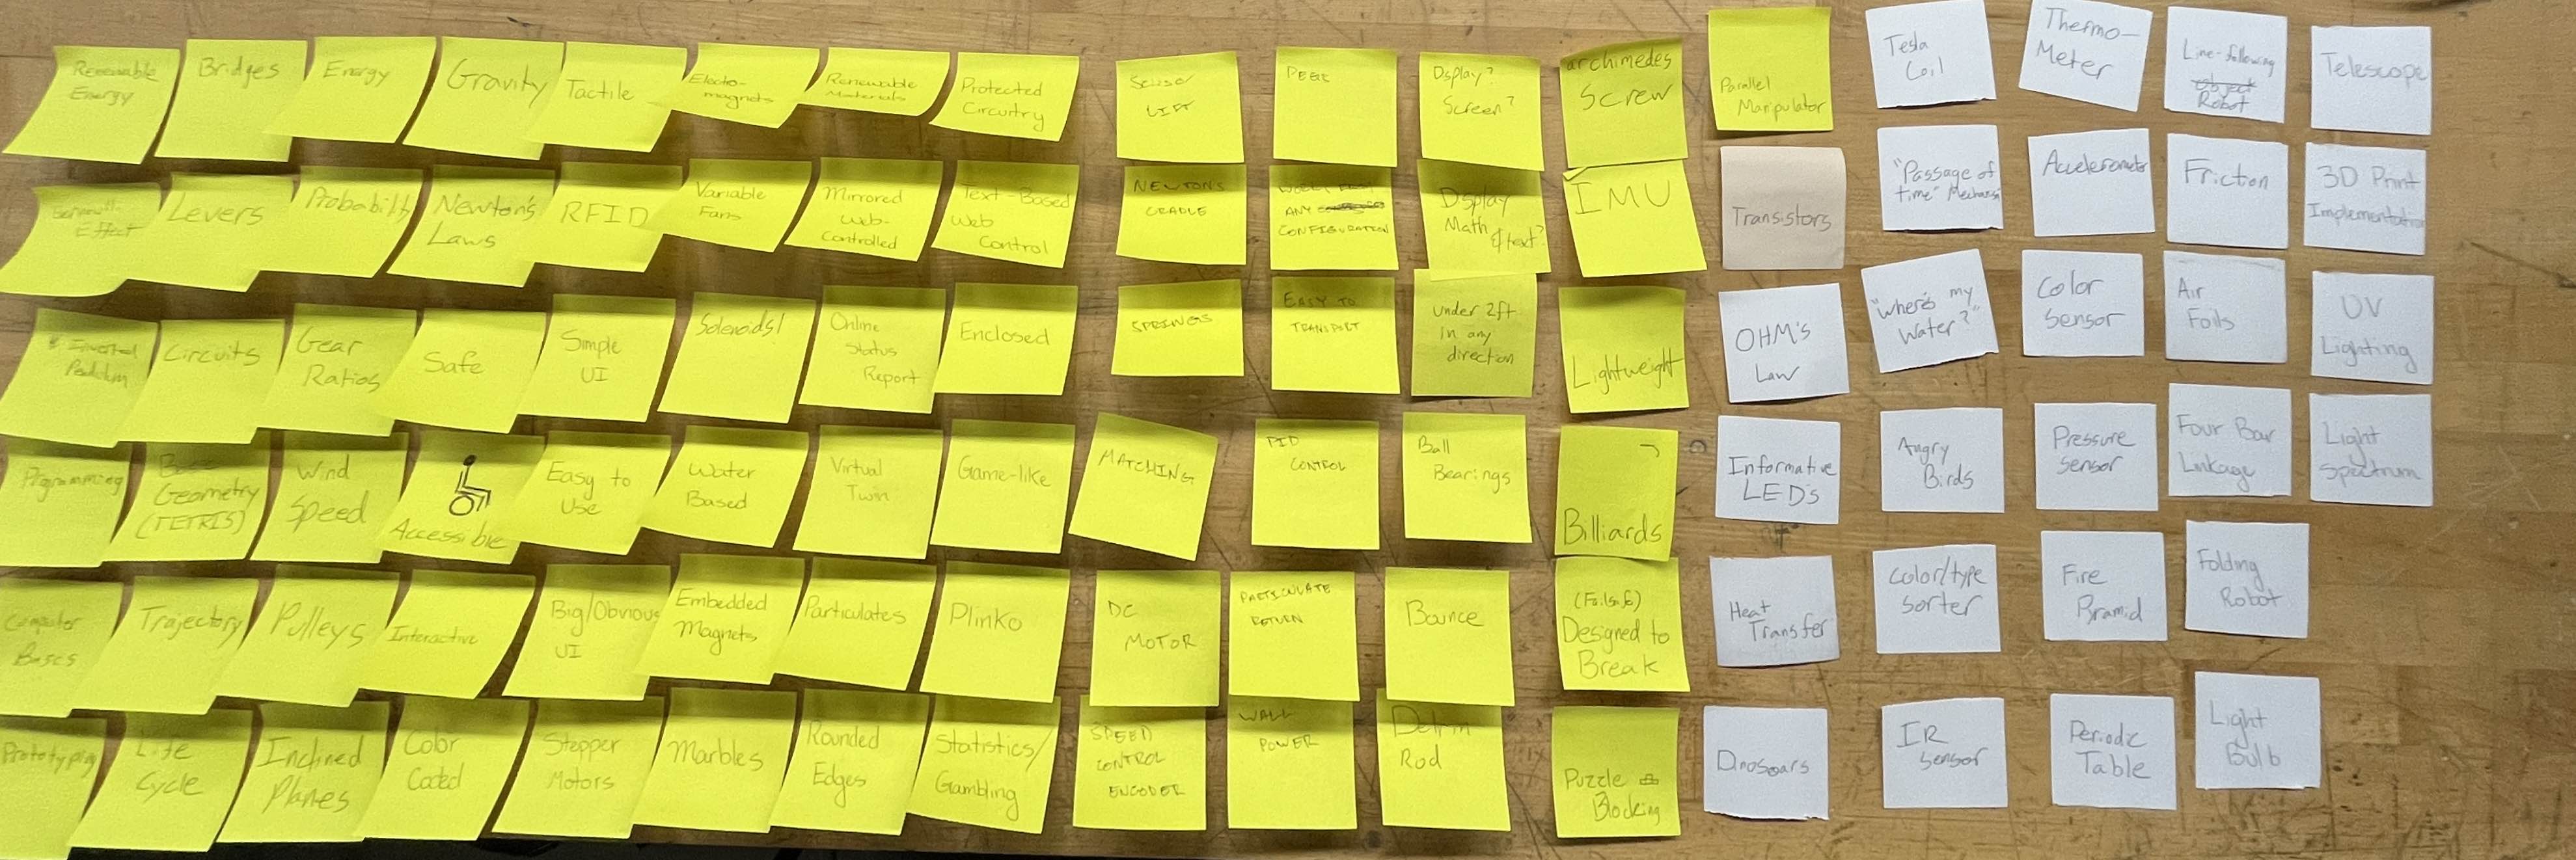 Renewable
Energy
Bridges
Energy
Gravity
Tactile
Electro-
magnets
Renewable
Materials
Protected
Circuitry
Scissor
LIFT
PEEK
Display?
Screen?
archimedes
Screw
Parallel
Manipulator
Tesla
Coil
Thermo-
Meter
Line-following
Robot
Telescope
Effect
Levers
Probability
Newton's
Laws
RFID
Variable
Fans
Mirrored
Web-
Controlled
Text-Based
Web
Control
NEWTONS
CRADLE
ANY
CONFIGURATION
Display
Math
&text?
IMU
Transistors
"Passage of
time" Mechanism
Accelerometer
Friction
3D Print
Implementation
Inverted
Pendulum
Circuits
Gear
Ratios
Safe
Simple
UI
Solenoids!
Online
Status
Report
Enclosed
SPRINGS
EASY TO
TRANSPORT
under 2ft
in any
direction
Lightweight
OHM's
Law
"where's my
Water?"
Color
Sensor
Air
Foils
UV
Lighting
Programming
Geometry
(TETRIS)
Wind
Speed
Accessible
Easy to
Use
Water
Based
Virtual
Twin
Game-like
MATCHING
PID
CONTROL
Ball
Bearings
Billiards
Informative
LED's
Angry
Birds
Pressure
Sensor
Four Bar
Linkage
Light
Spectrum
Computer
Trajectory
Pulleys
Interactive
Big/Obvious
UI
Embedded
Magnets
Particulates
Plinko
DC
MOTOR
PARTICULATE
RETURN
Bounce
(Failsafe)
Designed to
Break
Heat
Transfer
Color/type
Sorter
Fire
Pyramid
Folding
Robot
Prototyping
Life
Cycle
Inclined
Planes
Color
Coded
Stepper
Motors
Marbles
Rounded
Edges
Statistics/
Gambling
SPEED
CONTROL
ENCODER
WALL
POWER
Delrin
Rod
Puzzle
Blocking
Dinosaurs
IR
Sensor
Periodic
Table
Light
Bulb